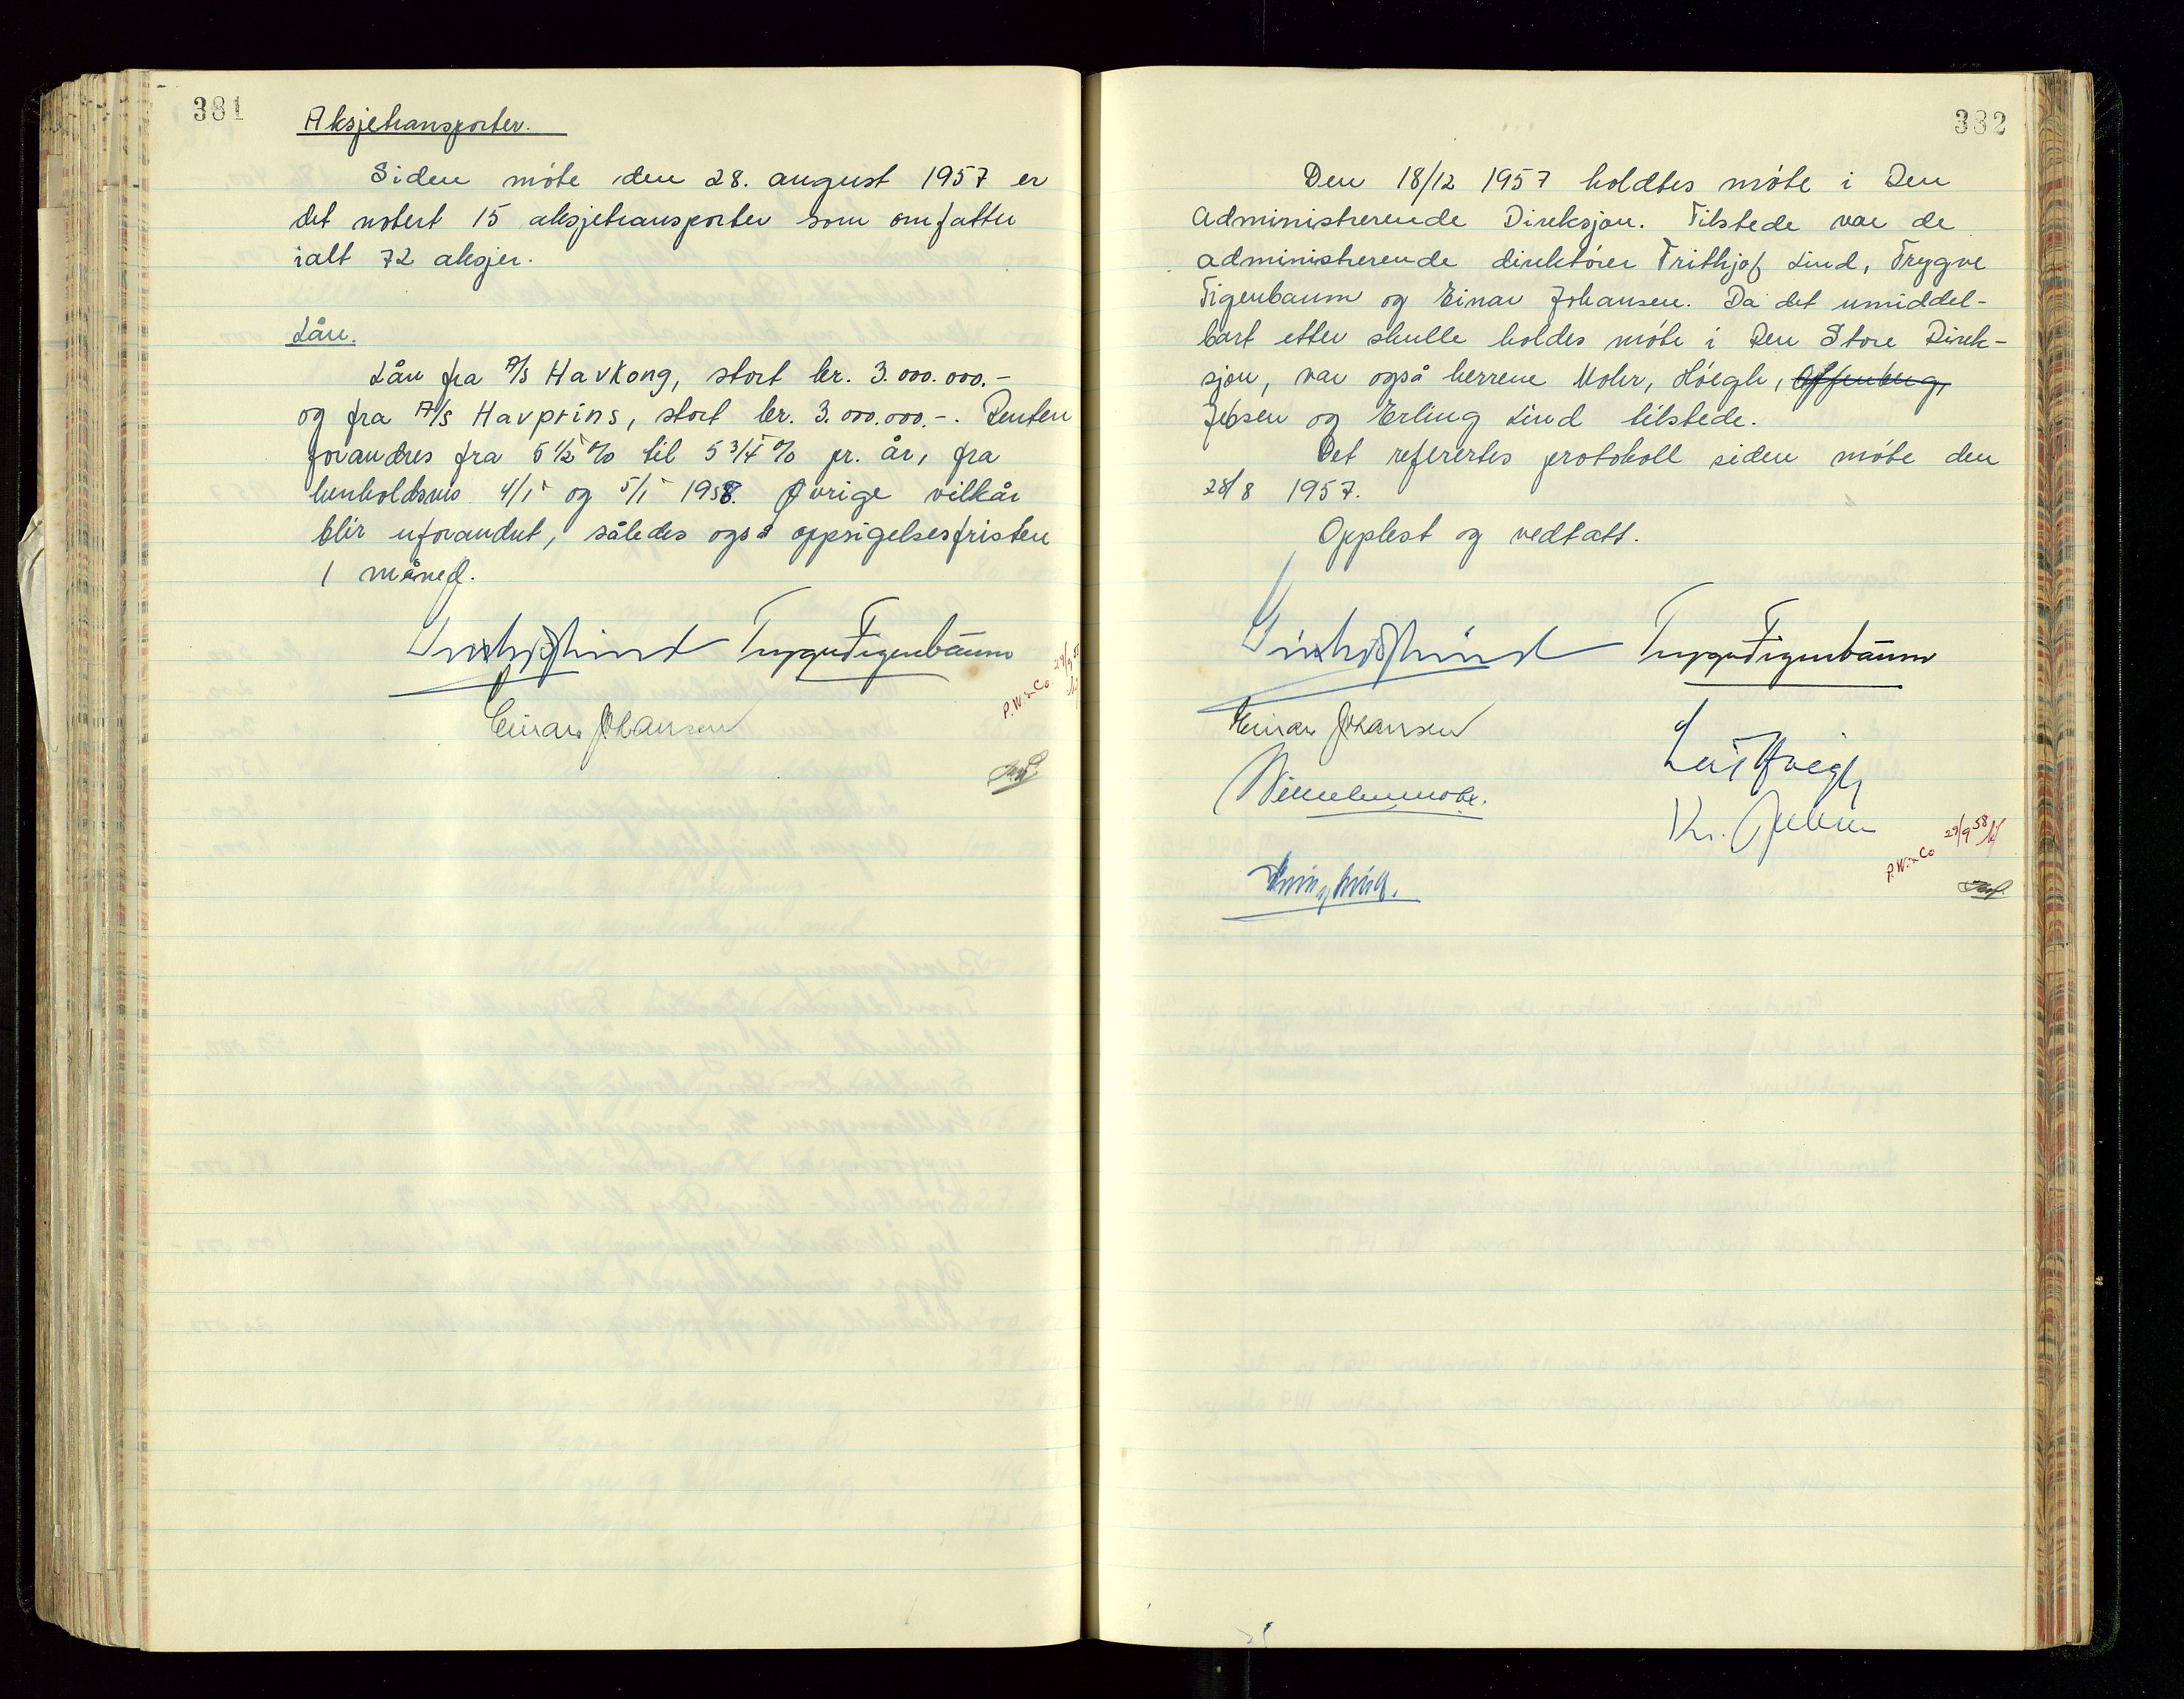 381
Aksjetransporter.
Siden møte den 28. august 1957 er
det notert 15 aksjetransporter som omfatter
ialt 72 aksjer.
Lån.
Lån fra A/S Havkong, stort kr. 3.000.000.-
og fra A/S Havprins, stort kr. 3.000.000.-. Renten
forandres fra 5 1/2 % til 5 3/4 % pr. år, fra
henholdsvis 4/1 og 5/1 1958. Øvrige vilkår
blir uforandret, således også oppsigelsesfristen
1 måned.
Frithjof Lind Trygve Figenbaum
Einar Johansen
P.W. & Co.
382
Den 18/12 1957 holdtes møte i Den
administrerende Direksjon. Tilstede var de
administrerende direktører Frithjof Lind, Trygve
Figenbaum og Einar Johansen. Da det umiddel-
bart etter skulle holdes møte i Den Store Direk-
sjon, var også herrene Mohr, Höegh, Astenberg,
Jebsen og Erling Lind tilstede.
Det referertes protokoll siden møte den
28/8 1957.
Opplest og vedtatt.
Frithjof Lind Trygve Figenbaum
Einar Johansen
Leif Höegh
Wilhelm Mohr.
Kr. Jebsen
P.W. & Co 29/9 58
Erling Lind.